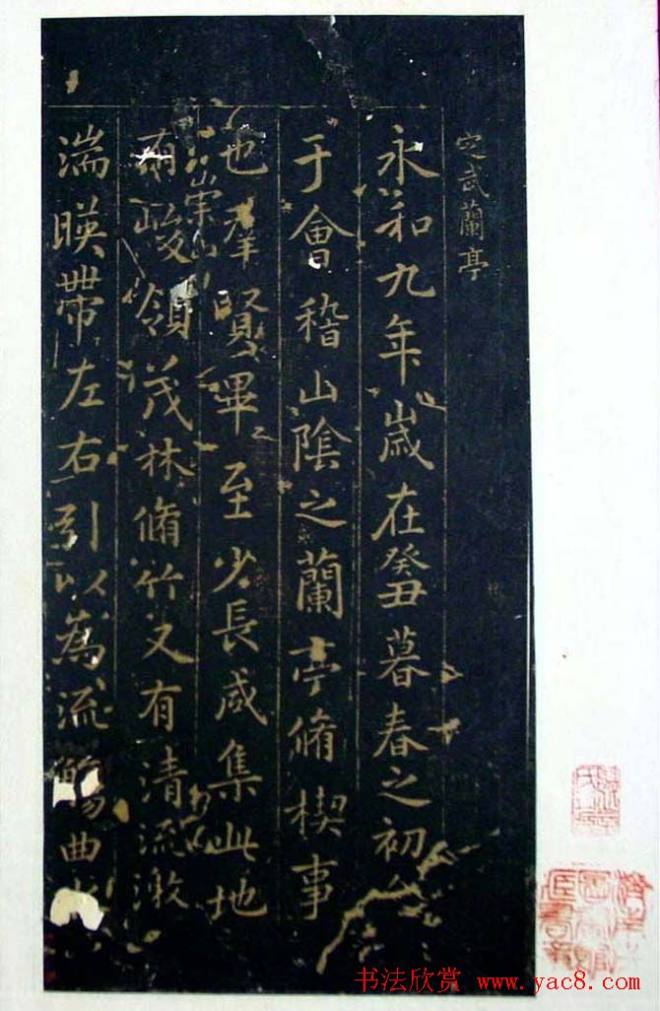 定武蘭亭
永和九年歲在癸丑暮春之初
于會稽山陰之蘭亭脩稧事
也羣賢畢至少長咸集此地
崇山
峻領茂林脩竹又有清流激
湍暎帶左右引以為流觴曲
书法欣赏 www.yac8.com